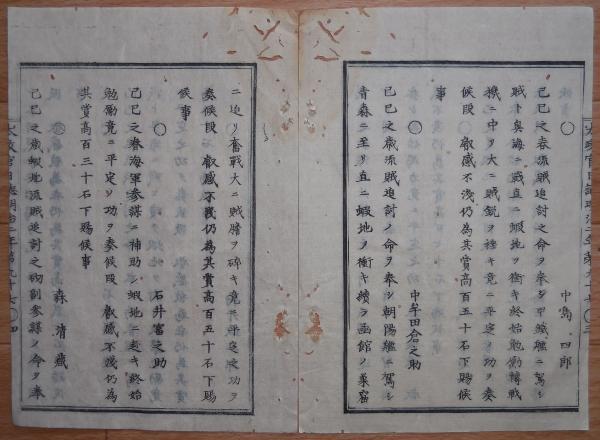 太政官日誌明治二年第九十七 ○三
○
中島 四郎
己巳之春流賊追討之命ヲ奉シ甲鐵艦ニ駕シ
賊ト奥海ニ戰直ニ蝦地ヲ衝キ終始勉勵轉戰
機ニ中ヲ大ニ賊鋭ヲ挫キ竟ニ平定ノ功ヲ奏
候段 叡感不淺仍為其賞高百五十石下賜候
事
○
中牟田倉之助
己巳之歳流賊追討ノ命ヲ奉シ朝陽艦ニ駕シ
青森ニ至リ直ニ蝦地ヲ衝キ續ヲ函館ノ巣窟
ニ迫リ奮戰大ニ賊膽ヲ碎キ竟ニ平定之功ヲ
奏候段 叡感不淺仍為其賞高百五十石下賜
候事
○
石井富之助
己巳之春海軍參謀ニ補助シ蝦地ニ赴キ終始
勉勵竟ニ平定ノ功ヲ奏候段 叡感不淺仍為
其賞高百三十石下賜候事
○
森 清藏
己巳之歳蝦地流賊追討之砌副參謀ノ命ヲ奉
太政官日誌明治二年第九十七 ○四